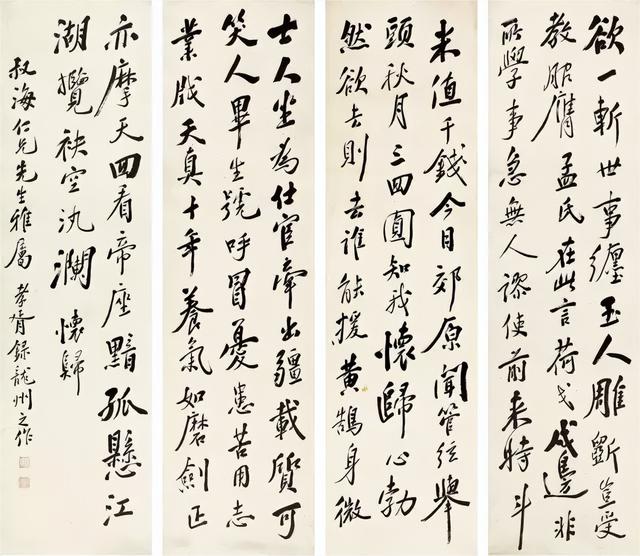 欲一斬世事纏玉人雕斵豈受
教服膺孟氏在此言荷戈戍邊非
所學事急無人謬使前来時斗
未值千錢今日郊原聞管弦舉
頭秋月三四圓知我懷歸心勃
然欲去則去誰能援黃鵠身微
士人坐為仕宦牽出疆載質可
笑人畢生號呼冒憂患苦用志
業戕天真十年養氣如磨劍正
亦摩天回看帝座黯孤懸江
湖攬袂空汍瀾懷歸
叔海仁兄先生雅屬 孝胥録龍州之作